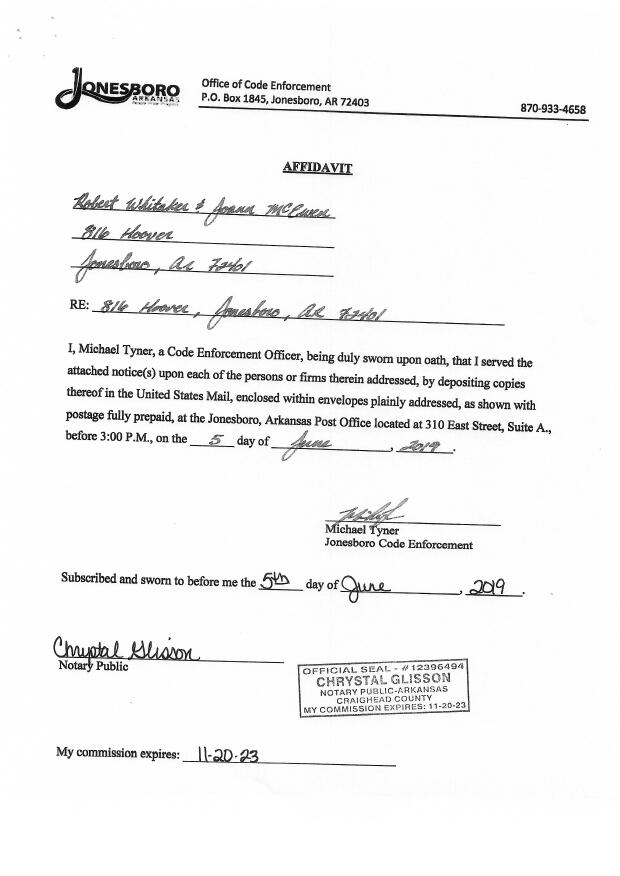 JONESBORO
ARKANSAS
Office of Code Enforcement
P.O. Box 1845, Jonesboro, AR 72403
870-933-4658
AFFIDAVIT
Robert Whitaker & Joann McEwen
816 Hoover
Jonesboro, AR 72401
RE: 816 Hoover, Jonesboro, AR 72401
I, Michael Tyner, a Code Enforcement Officer, being duly sworn upon oath, that I served the
attached notice(s) upon each of the persons or firms therein addressed, by depositing copies
thereof in the United States Mail, enclosed within envelopes plainly addressed, as shown with
postage fully prepaid, at the Jonesboro, Arkansas Post Office located at 310 East Street, Suite A.,
before 3:00 P.M., on the 5 day of June, 2019.
Michael Tyner
Jonesboro Code Enforcement
Subscribed and sworn to before me the 5th day of June, 2019.
Chrystal Glisson
Notary Public
OFFICIAL SEAL - #12396494
CHRYSTAL GLISSON
NOTARY PUBLIC-ARKANSAS
CRAIGHEAD COUNTY
MY COMMISSION EXPIRES: 11-20-23
My commission expires: 11-20-23